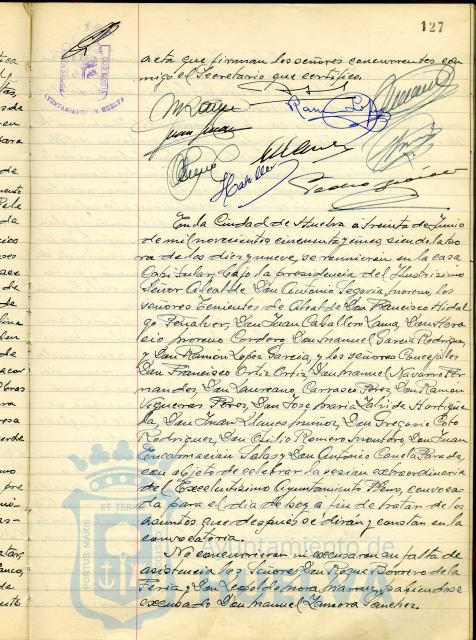 127
acta que firman los señores concurrentes con
migo el Secretario que certifico.
En la Ciudad de Huelva a treinta de Junio
de mil novecientos cincuenta y cinco, siendo la ho
ra de las diez y nueve, se reunieron en la Casa
Capitular, bajo la presidencia del Ilustrisimo
Señor Alcalde Don Antonio Segovia Moreno, los
señores Tenientes de Alcalde Don Francisco Hidal
go Peñalver, Don Juan Caballero Lama, Don Hora
cio Moreno Cordero, Don Manuel Garcia Rodriguez,
y Don Ramon Lopez Garcia, y los señores Concejales
Don Francisco Ortiz Ortiz, Don Manuel Navarro Fer
nandez, Don Laureano Carrasco Perez, Don Ramon
Vigueras Perez, Don Jose Maria de Hortigue
la, Don Juan Llanes Muñoz, Don Gregorio Coto
Rodriguez, Don Otilio Romero Montoro, Don Juan
Encarnacion Salas y Don Antonio Canela Parada,
con objeto de celebrar la sesion extraordinaria
del Excelentisimo Ayuntamiento Pleno, convoca
da para el dia de hoy a fin de tratar de los
asuntos que despues se diran y constan en la
convocatoria.
No concurrieron ni excusaron su falta de
asistencia los Señores Don Roque Borrero de la
Feria y Don Leopoldo Mora Marin, habiendose
excusado Don Manuel Zamora Sanchez.
AYUNTAMIENTO HUELVA
PORTUS MARIS ET TERRAE
Ayuntamiento de
HUELVA